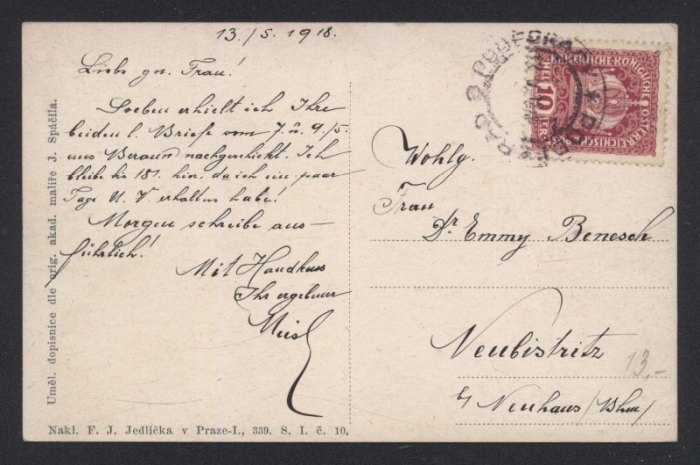 13./5. 1918.
Liebe gn. Frau!
Soeben erhielt ich Ihre
beiden l. Briefe vom 7. u. 9./5.
aus Beraun nachgeschickt. Ich
bleibe bis 18t. hier, da ich ein paar
Tage U. V. erhalten habe!
Morgen schreibe aus-
führlich!
Mit Handkuss
Ihr ergebener
Wohlg.
Frau
Dr Emmy Benesch
Neubistritz
b/ Neuhaus /Bhm/
13,-
Uměl. dopisnice dle orig. akad. malíře J. Spáčila.
Nakl. F. J. Jedlička v Praze-I., 339. S. I. č. 10.
KAISERLICHE KÖNIGLICHE ÖSTERREICHISCHE POST
HELLER 10
PODĚBRADY